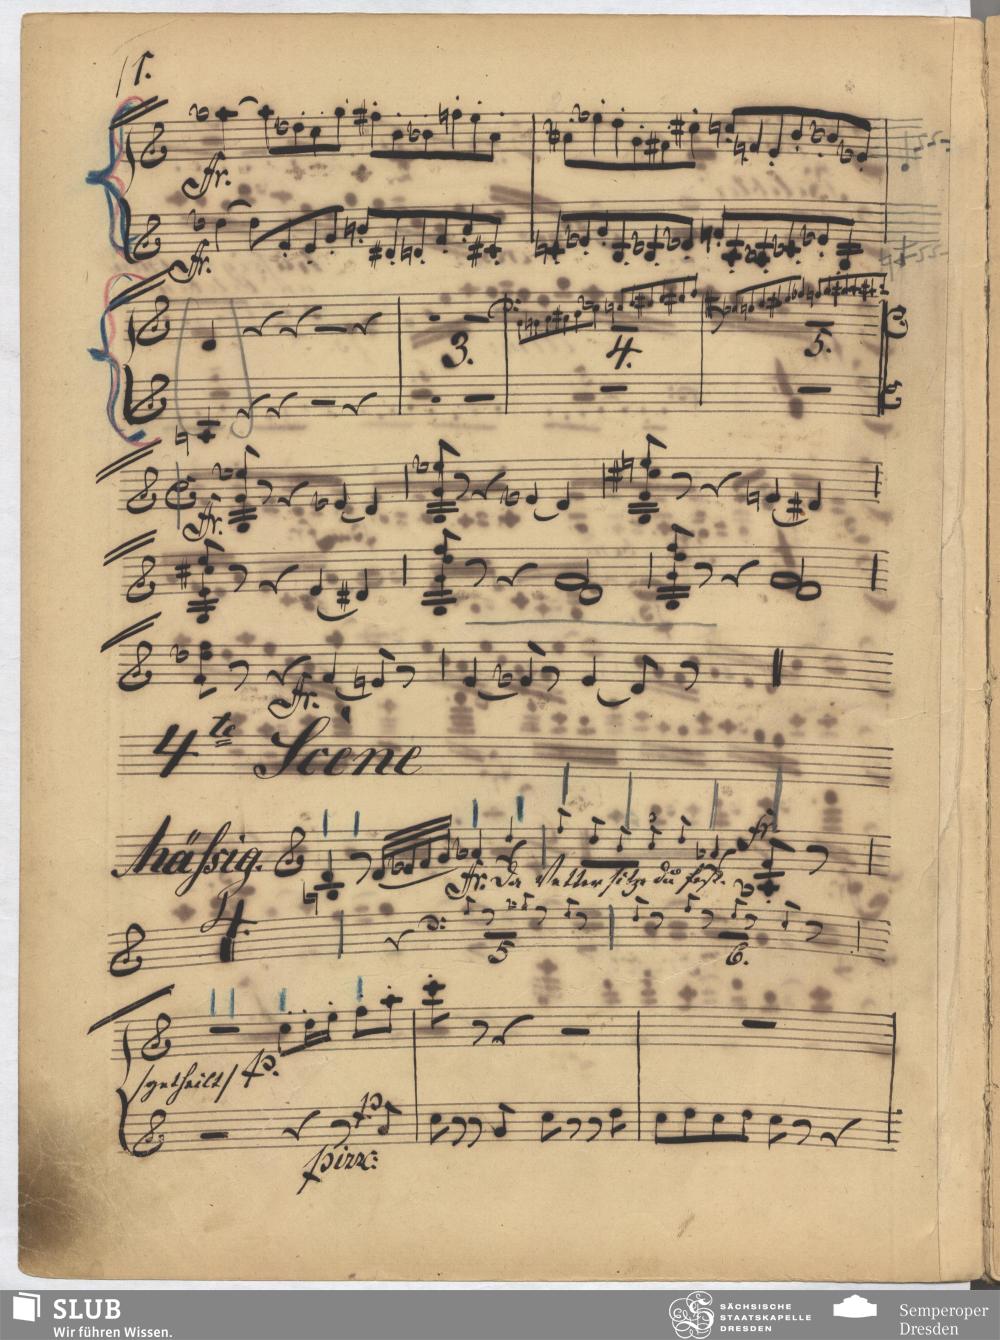 1.
fr.
fr.
3. 4. 5.
fr.
fr.
4te Scene
Mässig. fr. Da Vetter sitze du fest. fr.
4. 5 6.
/getheilt/ p.
p
pizzc:
SLUB
Wir führen Wissen.
SÄCHSISCHE
STAATSKAPELLE
DRESDEN
Semperoper
Dresden